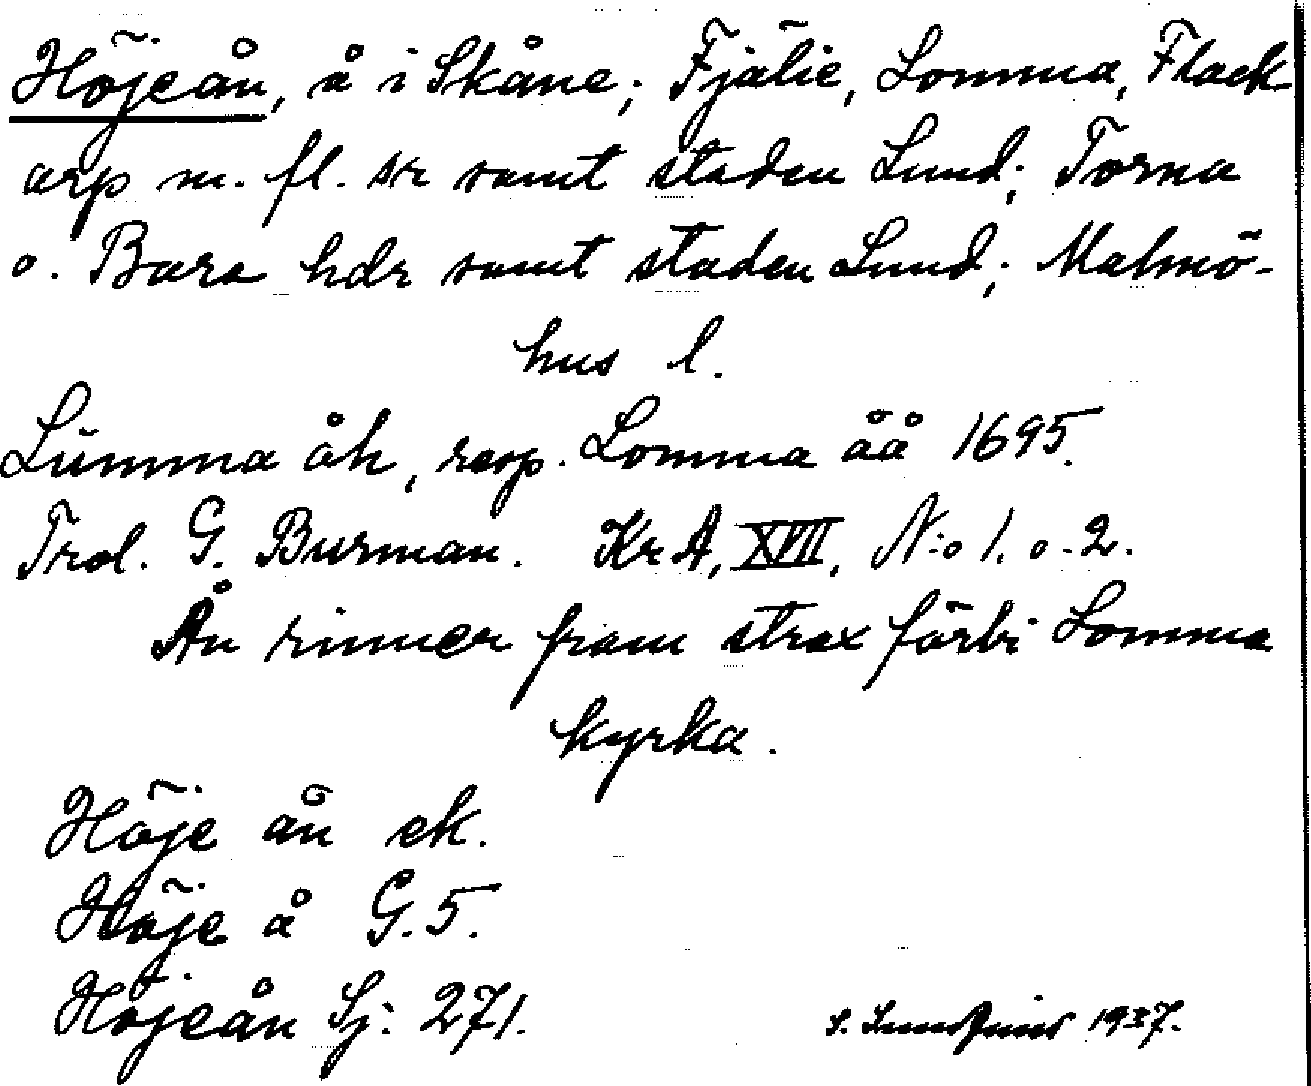 Höjeån, å i Skåne; Fjälie, Lomma, Flack
arp m. fl. sr samt staden Lund; Torna
o. Bara hdr samt staden Lund; Malmö-
hus l.
Lŭmma åh, resp. Lomma åå 1695.
Trol. G. Burman. KrA, XVII, N:o 1. o. 2.
Ån rinner fram strax förbi Lomma
kyrka.
Höje ån ek.
Höje å G.5.
Höjeån Sj: 271.
1937.